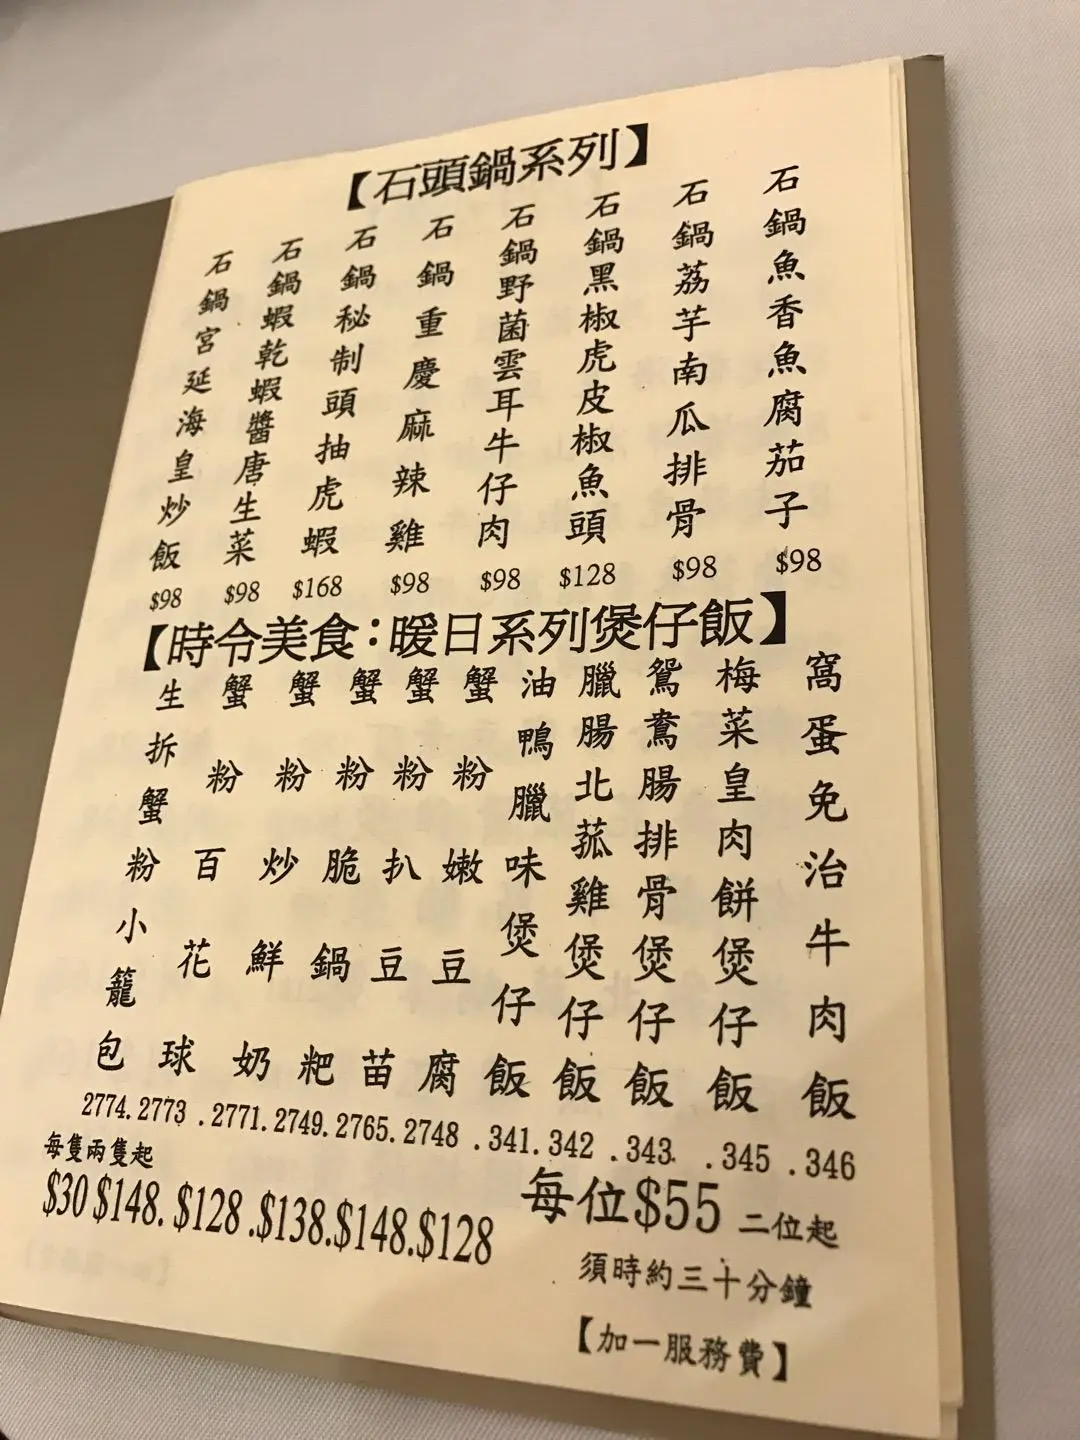 【石頭鍋系列】
石鍋魚香魚腐茄子
$98
石鍋荔芋南瓜排骨
$98
石鍋黑椒虎皮椒魚頭
$128
石鍋野菌雲耳牛仔肉
$98
石鍋重慶麻辣雞
$98
石鍋秘制頭抽虎蝦
$168
石鍋蝦乾蝦醬唐生菜
$98
石鍋宮延海皇炒飯
$98
【時令美食:暖日系列煲仔飯】
窩蛋免治牛肉飯
.346
梅菜皇肉餅煲仔飯
.345
鴛鴦腸排骨煲仔飯
.343
臘腸北菰雞煲仔飯
342
油鴨臘味煲仔飯
.341.
蟹粉嫩豆腐
2748
蟹粉扒豆苗
2765.
蟹粉脆鍋粑
2749.
蟹粉炒鮮奶
.2771.
蟹粉百花球
2773
生拆蟹粉小籠包
2774.
每隻兩隻起
$30 $148. $128 .$138.$148.$128
每位$55 二位起
須時約三十分鐘
【加一服務費】